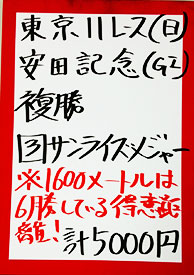 東京11レース(日)
安田記念(G1)
複勝
3サンライズメジャー
※1600メートルは
6勝している得意距
離!計5000円